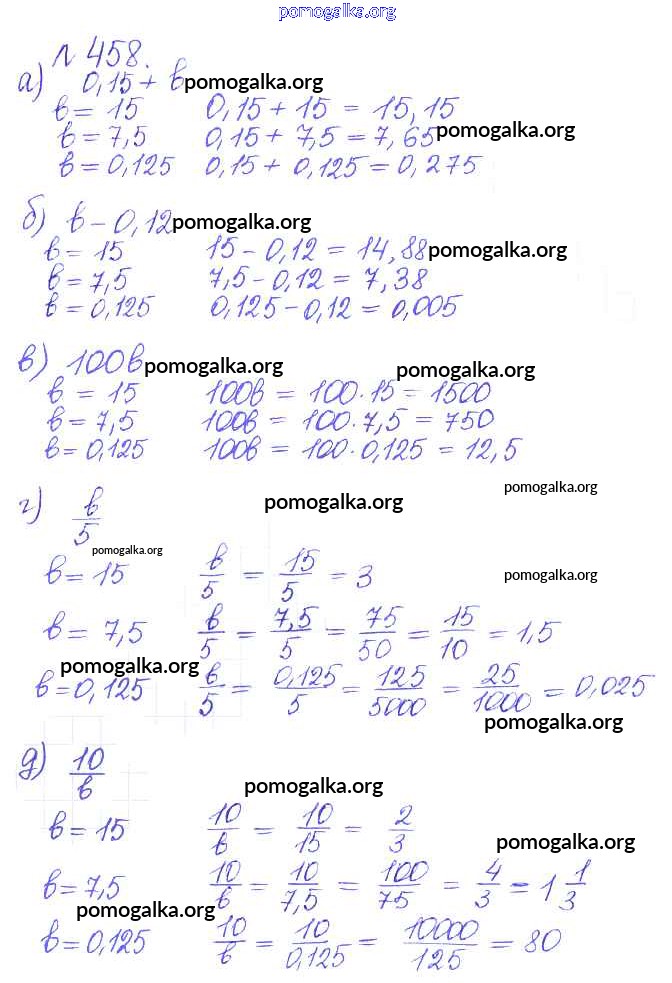 pomogalka.org
№ 458.
а) 0,15 + в pomogalka.org
в = 15 0,15 + 15 = 15,15
в = 7,5 0,15 + 7,5 = 7,65 pomogalka.org
в = 0,125 0,15 + 0,125 = 0,275
б) в - 0,12 pomogalka.org
в = 15 15 - 0,12 = 14,88 pomogalka.org
в = 7,5 7,5 - 0,12 = 7,38
в = 0,125 0,125 - 0,12 = 0,005
в) 100в pomogalka.org pomogalka.org
в = 15 100в = 100·15 = 1500
в = 7,5 100в = 100·7,5 = 750
в = 0,125 100в = 100·0,125 = 12,5
pomogalka.org
г) в/5 pomogalka.org
pomogalka.org
в = 15 в/5 = 15/5 = 3 pomogalka.org
в = 7,5 в/5 = 7,5/5 = 75/50 = 15/10 = 1,5
pomogalka.org
в = 0,125 в/5 = 0,125/5 = 125/5000 = 25/1000 = 0,025
pomogalka.org
д) 10/в
pomogalka.org
в = 15 10/в = 10/15 = 2/3
pomogalka.org
в = 7,5 10/в = 10/7,5 = 100/75 = 4/3 = 1 1/3
pomogalka.org
в = 0,125 10/в = 10/0,125 = 10000/125 = 80